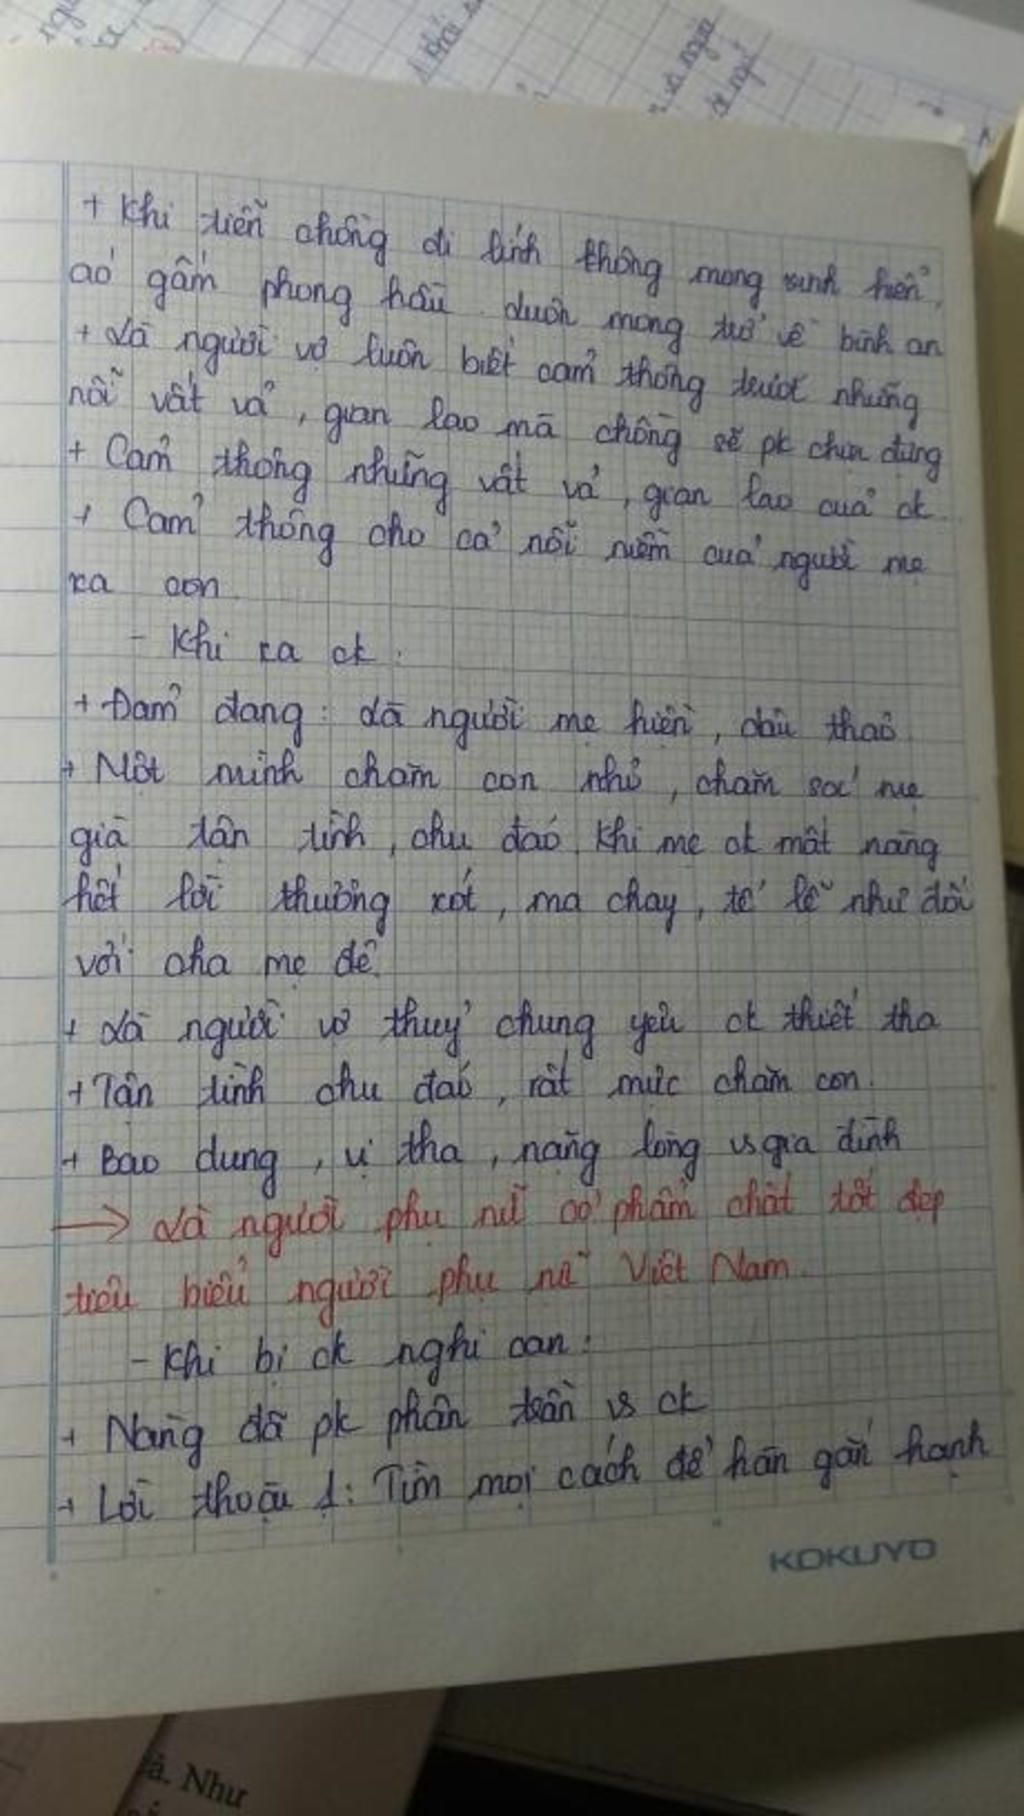 + Khi tiễn chồng đi lính không mong vinh hiển,
áo gấm phong hầu. Luôn mong trở về bình an
+ Là người vợ luôn biết cảm thông trước những
nỗi vất vả, gian lao mà chồng sẽ pk chịu đựng
+ Cảm thông những vất vả, gian lao của ck.
+ Cảm thông cho cả nỗi niềm của người mẹ
xa con.
- Khi xa ck:
+ Đảm đang: Là người mẹ hiền, dâu thảo
+ Một mình chăm con nhỏ, chăm sóc mẹ
già tận tình, chu đáo. Khi mẹ ck mất nàng
hết lời thương xót, ma chay, tế lễ như đối
với cha mẹ đẻ.
+ Là người vợ thuỷ chung yêu ck thiết tha
+ Tận tình chu đáo, rất mực chăm con.
+ Bao dung, vị tha, nặng lòng vs gia đình
→ Là người phụ nữ có phẩm chất tốt đẹp
tiêu biểu người phụ nữ Việt Nam.
- Khi bị ck nghi oan:
+ Nàng đã pk phân trần vs ck
+ Lời thoại 1: Tìm mọi cách để hàn gắn hạnh
KOKUYO
à. Như